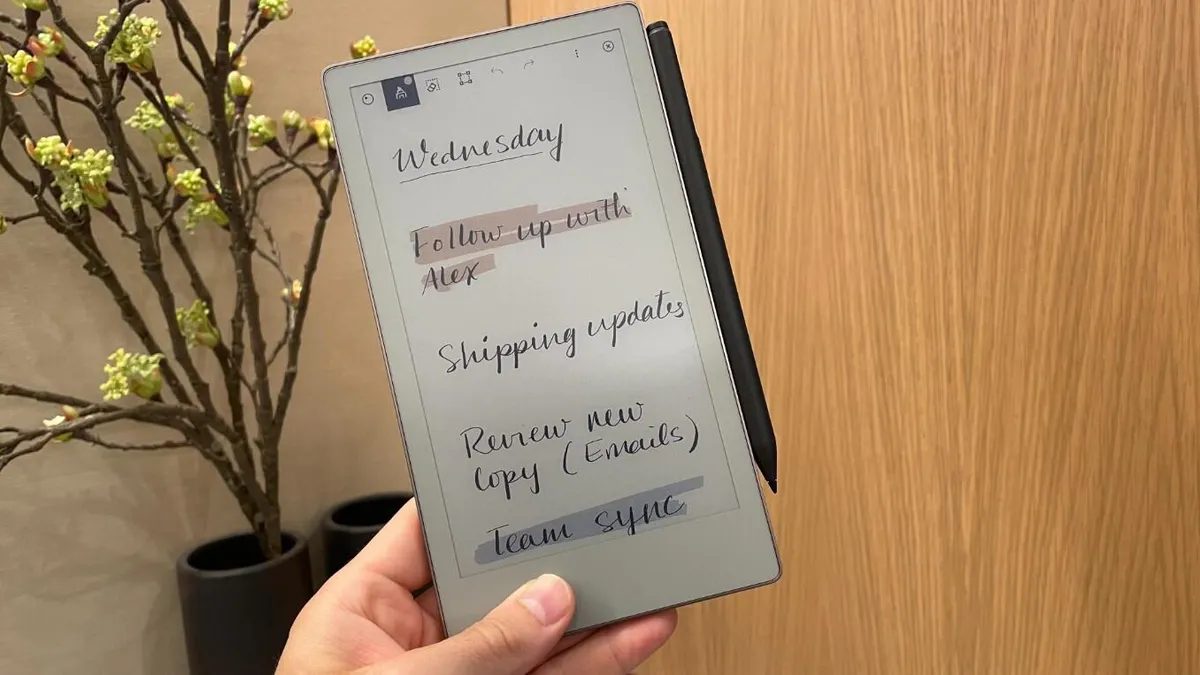 Wednesday
Follow up with
Alex
Shipping updates
Review new
Copy (Emails)
Team sync